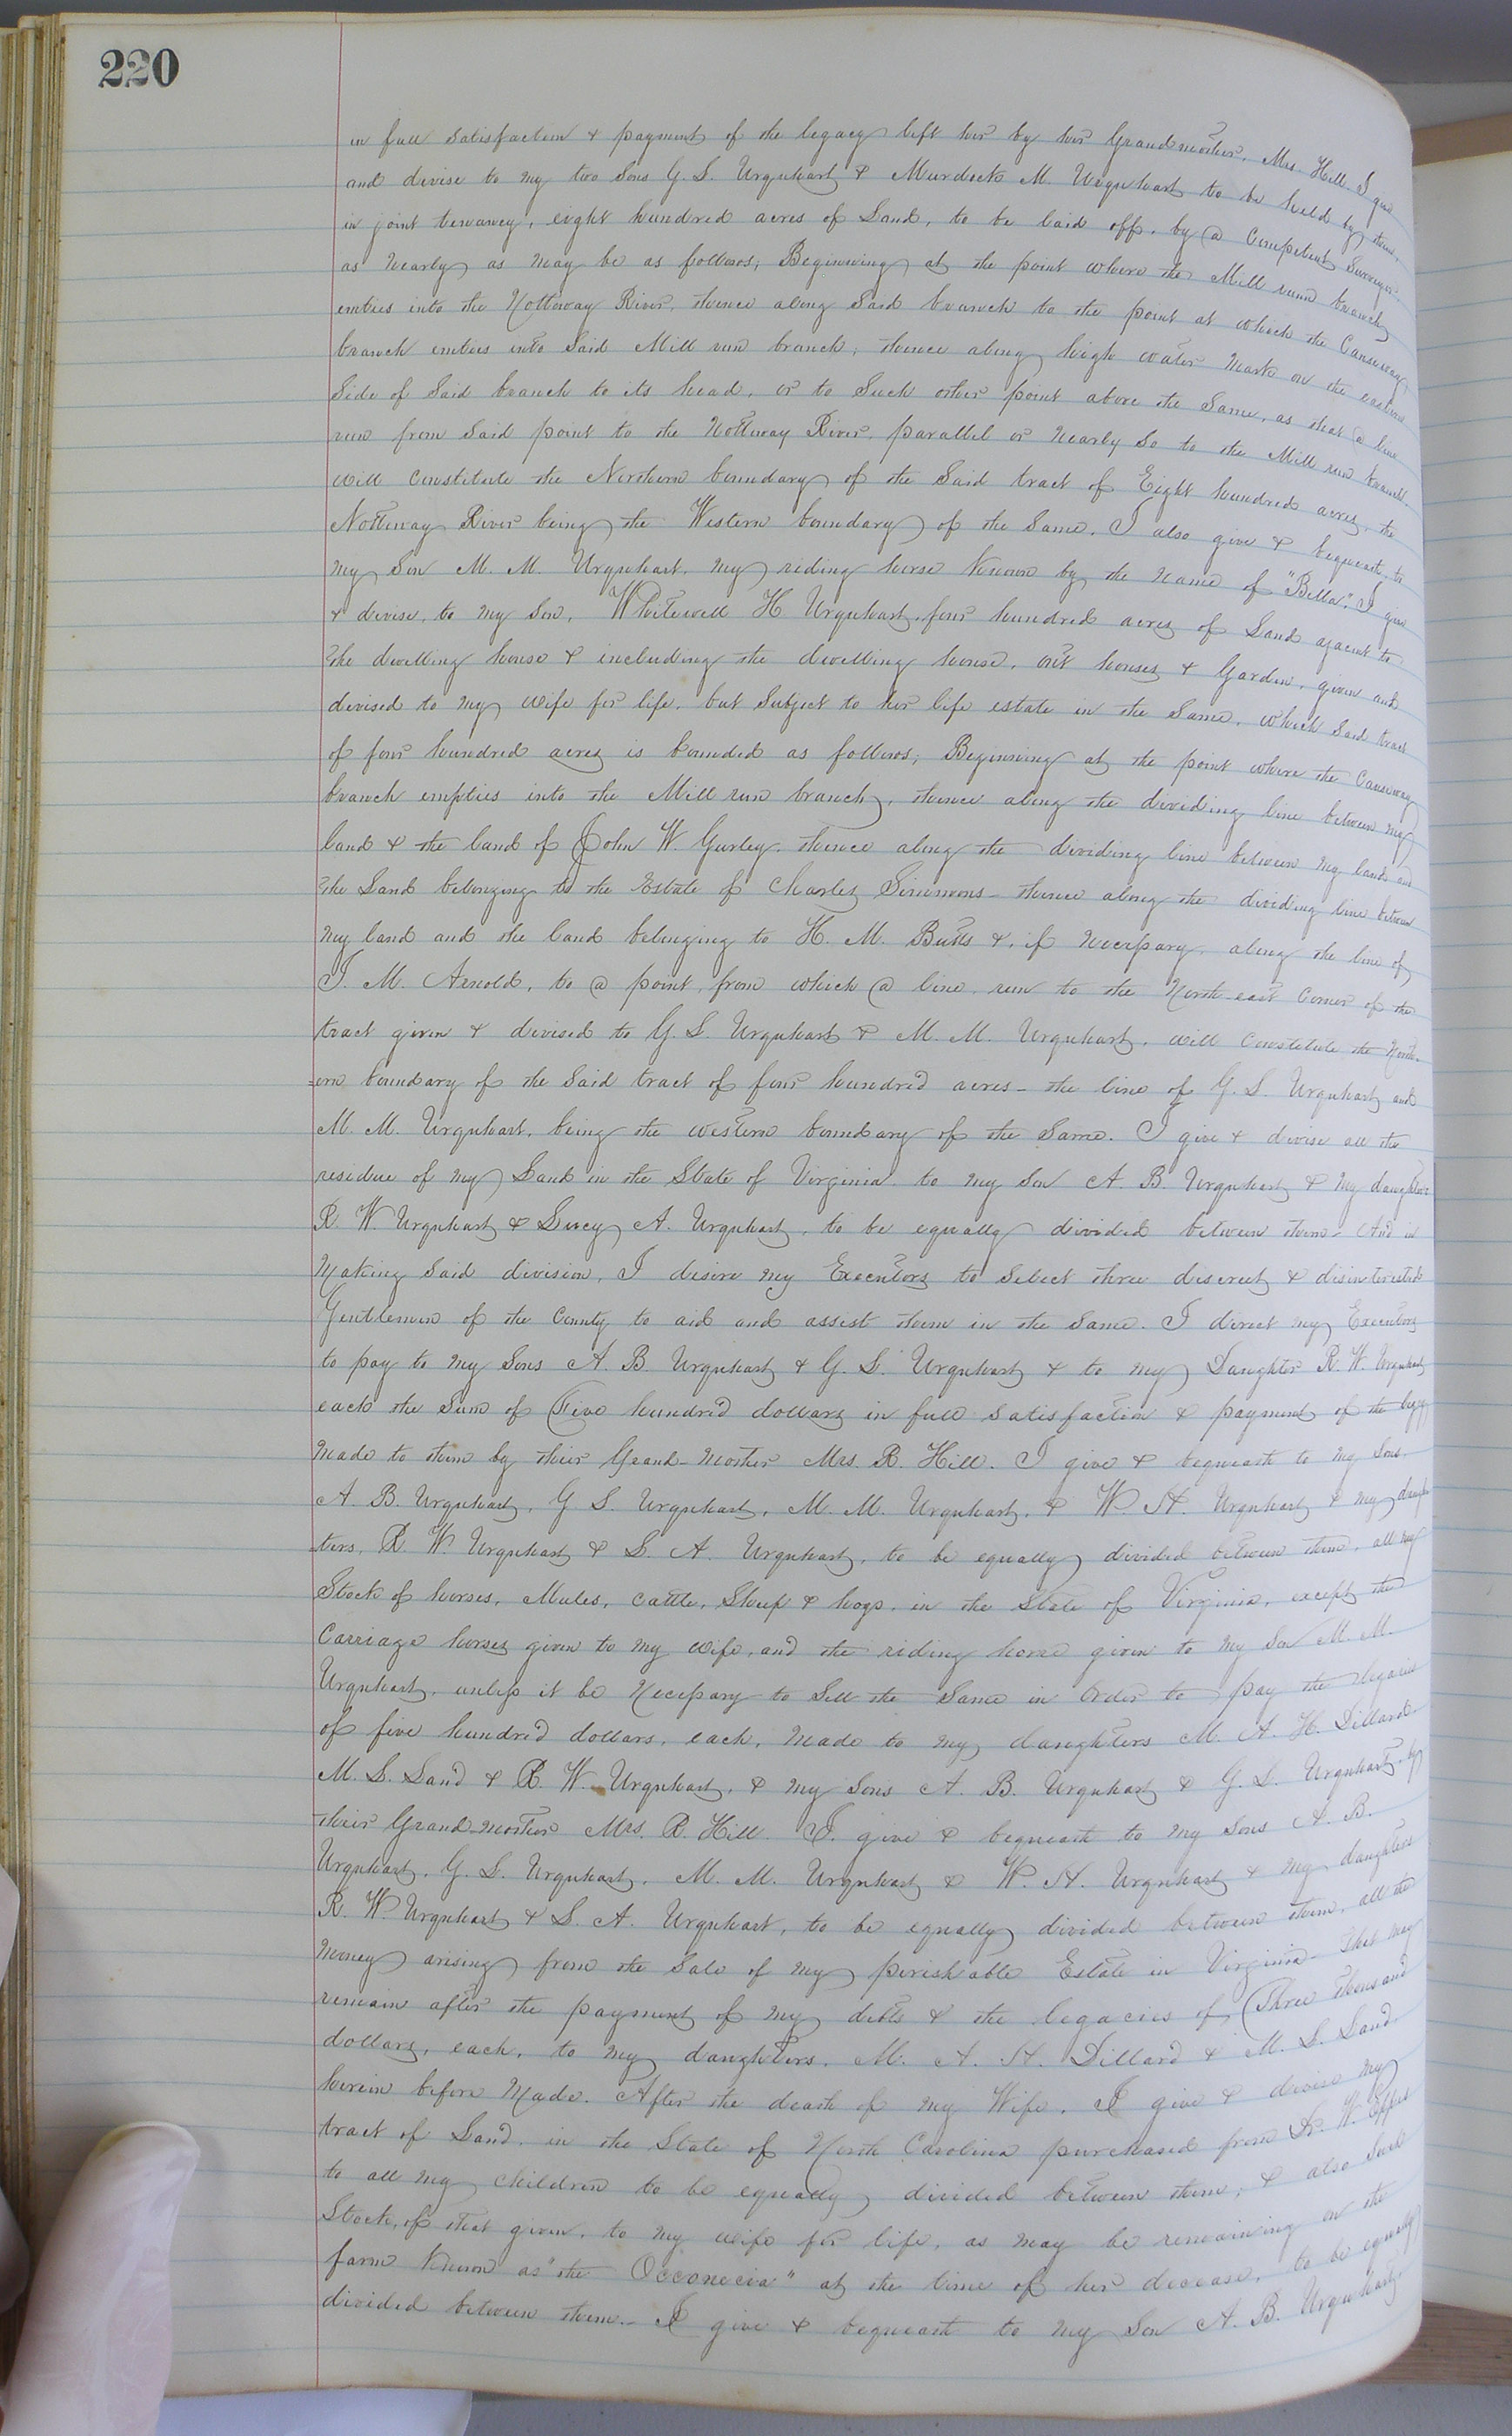 220
in full satisfaction & payment of the legacy left her by her Grandmother, Mrs. Hill. I give
and devise to my two Sons G. S. Urquhart & Murdock M. Urquhart to be held by them,
in joint tenancy, eight hundred acres of Land, to be laid off, by a Competent Surveyor
as nearly as may be as follows; Beginning at the point where the Mill run branch
enters into the Nottoway River, thence along Said branch to the point at which the Causeway
branch enters into Said Mill run branch, thence along high water mark on the eastern
Side of Said branch to its head, or to Such other point above the Same, as that a line
run from Said point to the Nottoway River, parallel or nearly So to the Mill run branch
will Constitute the Northern boundary of the Said tract of Eight hundred acres, the
Nottoway River being the Western boundary of the Same. I also give & bequeath to
my Son M. M. Urquhart, my riding horse known by the name of "Bella". I give
& devise, to my Son, Whitewell H Urquhart, four hundred acres of Land ajacent to
the dwelling house & including the dwelling house, out houses & Garden, given and
devised to my wife for life, but Subject to her life estate in the Same, which Said tract
of four hundred acres is bounded as follows; Beginning at the point where the Causeway
branch empties into the Mill run branch, thence along the dividing line between my
land & the land of John W. Gurley, thence along the dividing line between my land and
the Land belonging to the Estate of Charles Simmons - thence along the dividing line between
my land and the land belonging to H. M. Butts & if necessary, along the line of
J. M. Arnold, to a point, from which a line run to the North-east Corner of the
tract given & devised to G. S. Urquhart & M. M. Urquhart, will Constitute the North-
=ern boundary of the Said tract of four hundred acres - the line of G. S. Urquhart and
M. M. Urquhart, being the western boundary of the Same. I give & devise all the
residue of my Land in the State of Virginia, to my Son A. B. Urquhart & my daughters
R. W Urquhart & Lucy A. Urquhart, to be equally divided between them - And in
Making Said division, I desire my Executors to Select three discreet & disinterested
Gentlemen of the County to aid and assist them in the Same. I direct my Executors
to pay to my Sons A. B. Urquhart & G. S. Urquhart & to my Daughter R. W. Urquhart
each the Sum of Five hundred dollars in full Satisfaction & payment of the
made to them by their Grand-mother Mrs. R. Hill. I give & bequeath to my Sons,
A. B. Urquhart, G S. Urquhart, M. M. Urquhart, & W. H. Urquhart & my daugh
=ters, R. W. Urquhart & L. A. Urquhart, to be equally divided between them, all my
Stock of horses, Mules, cattle, Sheep & hogs, in the State of Virginia, except the
Carriage horses given to my wife, and the riding horse given to my Son M. M.
Urquhart, unless it be Necessary to Sell the Same in Order to pay the legacies
of five hundred dollars, each, made to my daughters M. A. H. Dillard,
M. S. Land & R. W. Urquhart, & my Sons A. B. Urquhart & G. S. Urquhart, by
their Grand-mother Mrs. R. Hill. I give & bequeath to my Sons A. B.
Urquhart, G. S. Urquhart, M. M. Urquhart & W. H. Urquhart & my daughters
R. W. Urquhart & L. A. Urquhart, to be equally divided between them, all the
Money arising from the Sale of my perishable Estate in Virginia that may
remain after the payment of my debts & the legacies of Three thousand
dollars, each, to my daughters, M. A. H. Dillard & M. S. Land,
herein before Made. After the death of my Wife, I give & devise my
tract of Land, in the State of North Carolina purchased from W.
to all my children to be equally divided between them; & also Such
Stock, of that given, to my wife for life, as may be remaining on the
farm known as "the Occonecia" at the time of her decease, to be equally
divided between them. - I give & bequeath to my Son A. B. Urquhart,